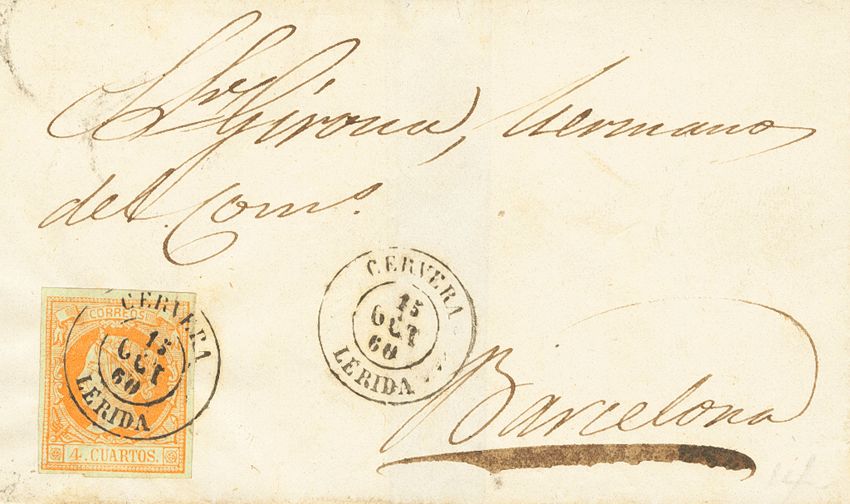 Sr. Girona, hermanos
del Coms.
CERVERA
15
OCT
60
LERIDA
CORREOS
CERVERA
15
OCT
60
LERIDA
4 CUARTOS.
Barcelona